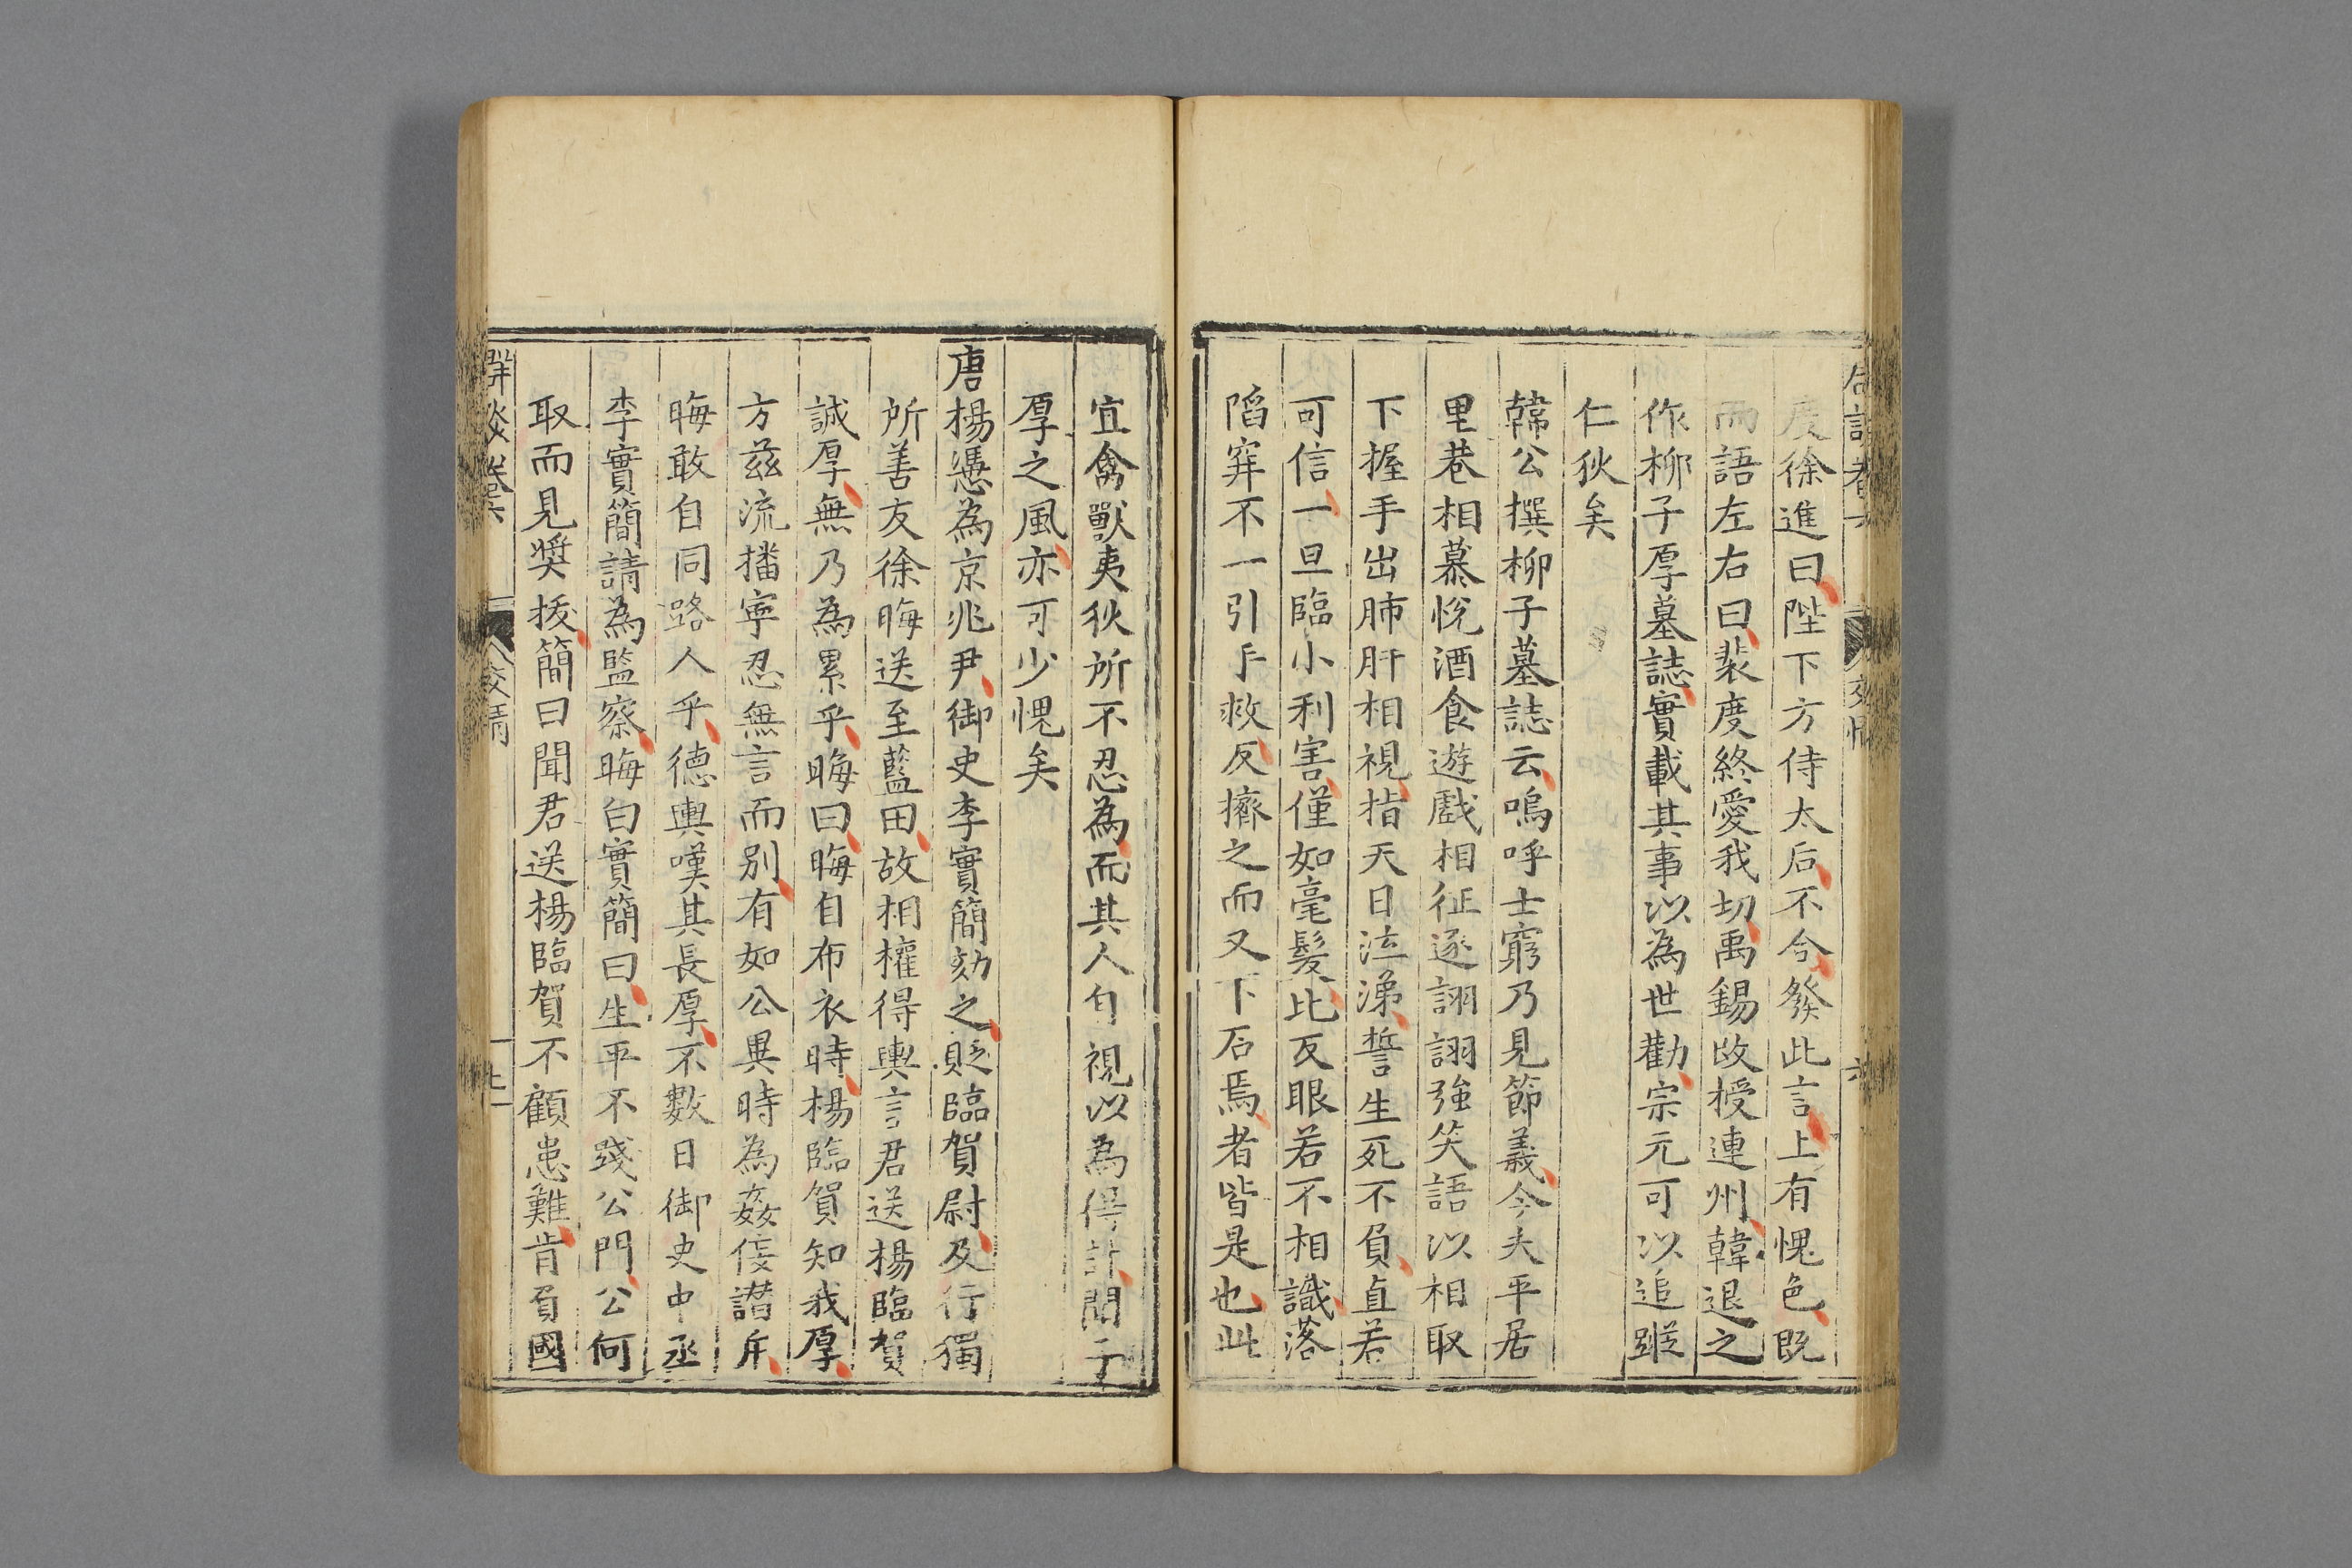 度徐進曰陛下方侍太后不合發此言上有愧色既
而語左右曰裴度終愛我切禹錫改授連州韓退之
作柳子厚墓誌實載其事以為世勸宗元可以追蹤
仁狄矣
韓公撰柳子墓誌云嗚呼士窮乃見節義今夫平居
里巷相慕悅酒食遊戲相征逐詡詡強笑語以相取
下握手出肺肝相視指天日泣涕誓生死不負直若
可信一旦臨小利害僅如毫髮比反眼若不相識落
陷穽不一引手救反擠之而又下石焉者皆是也此
宜禽獸夷狄所不忍為而其人自視以為得計聞子
厚之風亦可少愧矣
唐楊憑為京兆尹御史李實簡劾之貶臨賀尉及行獨
所善友徐晦送至藍田故相權得輿言君送楊臨賀
誠厚無乃為累乎晦曰晦自布衣時楊臨賀知我厚
方茲流播寧忍無言而別有如公異時為姦佞譖斥
晦敢自同路人乎德輿嘆其長厚不數日御史中丞
李實簡請為監察晦白實簡曰生平不踐公門公何
取而見奬拔簡曰聞君送楊臨賀不顧患難肯負國